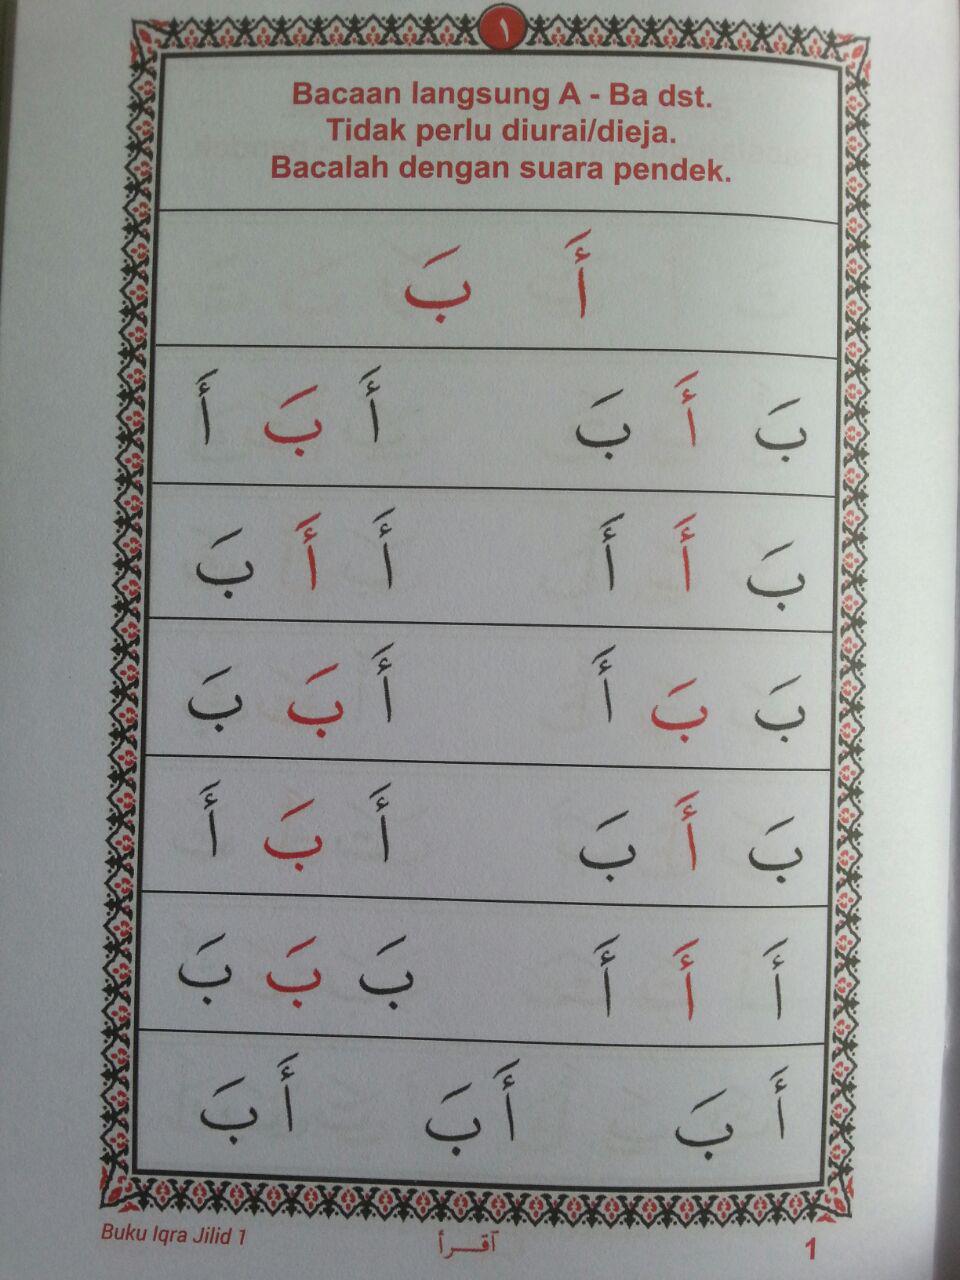 ١
Bacaan langsung A - Ba dst.
Tidak perlu diurai/dieja.
Bacalah dengan suara pendek.
أَ بَ
بَ أَ بَ أَ بَ أَ
بَ أَ أَ أَ أَ بَ
بَ بَ أَ أَ بَ بَ
بَ أَ بَ أَ بَ أَ
أَ أَ أَ بَ بَ بَ
أَ بَ أَ بَ أَ بَ
Buku Iqra Jilid 1 آقـــرأ 1